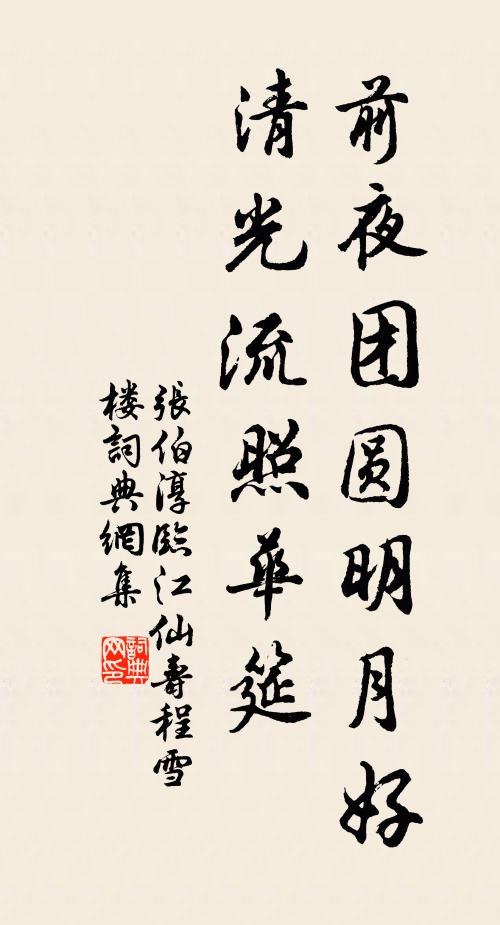 前夜团圆明月好
清光流照華筵
張伯淳臨江仙壽程雪
楼詞典網集
詞典网印